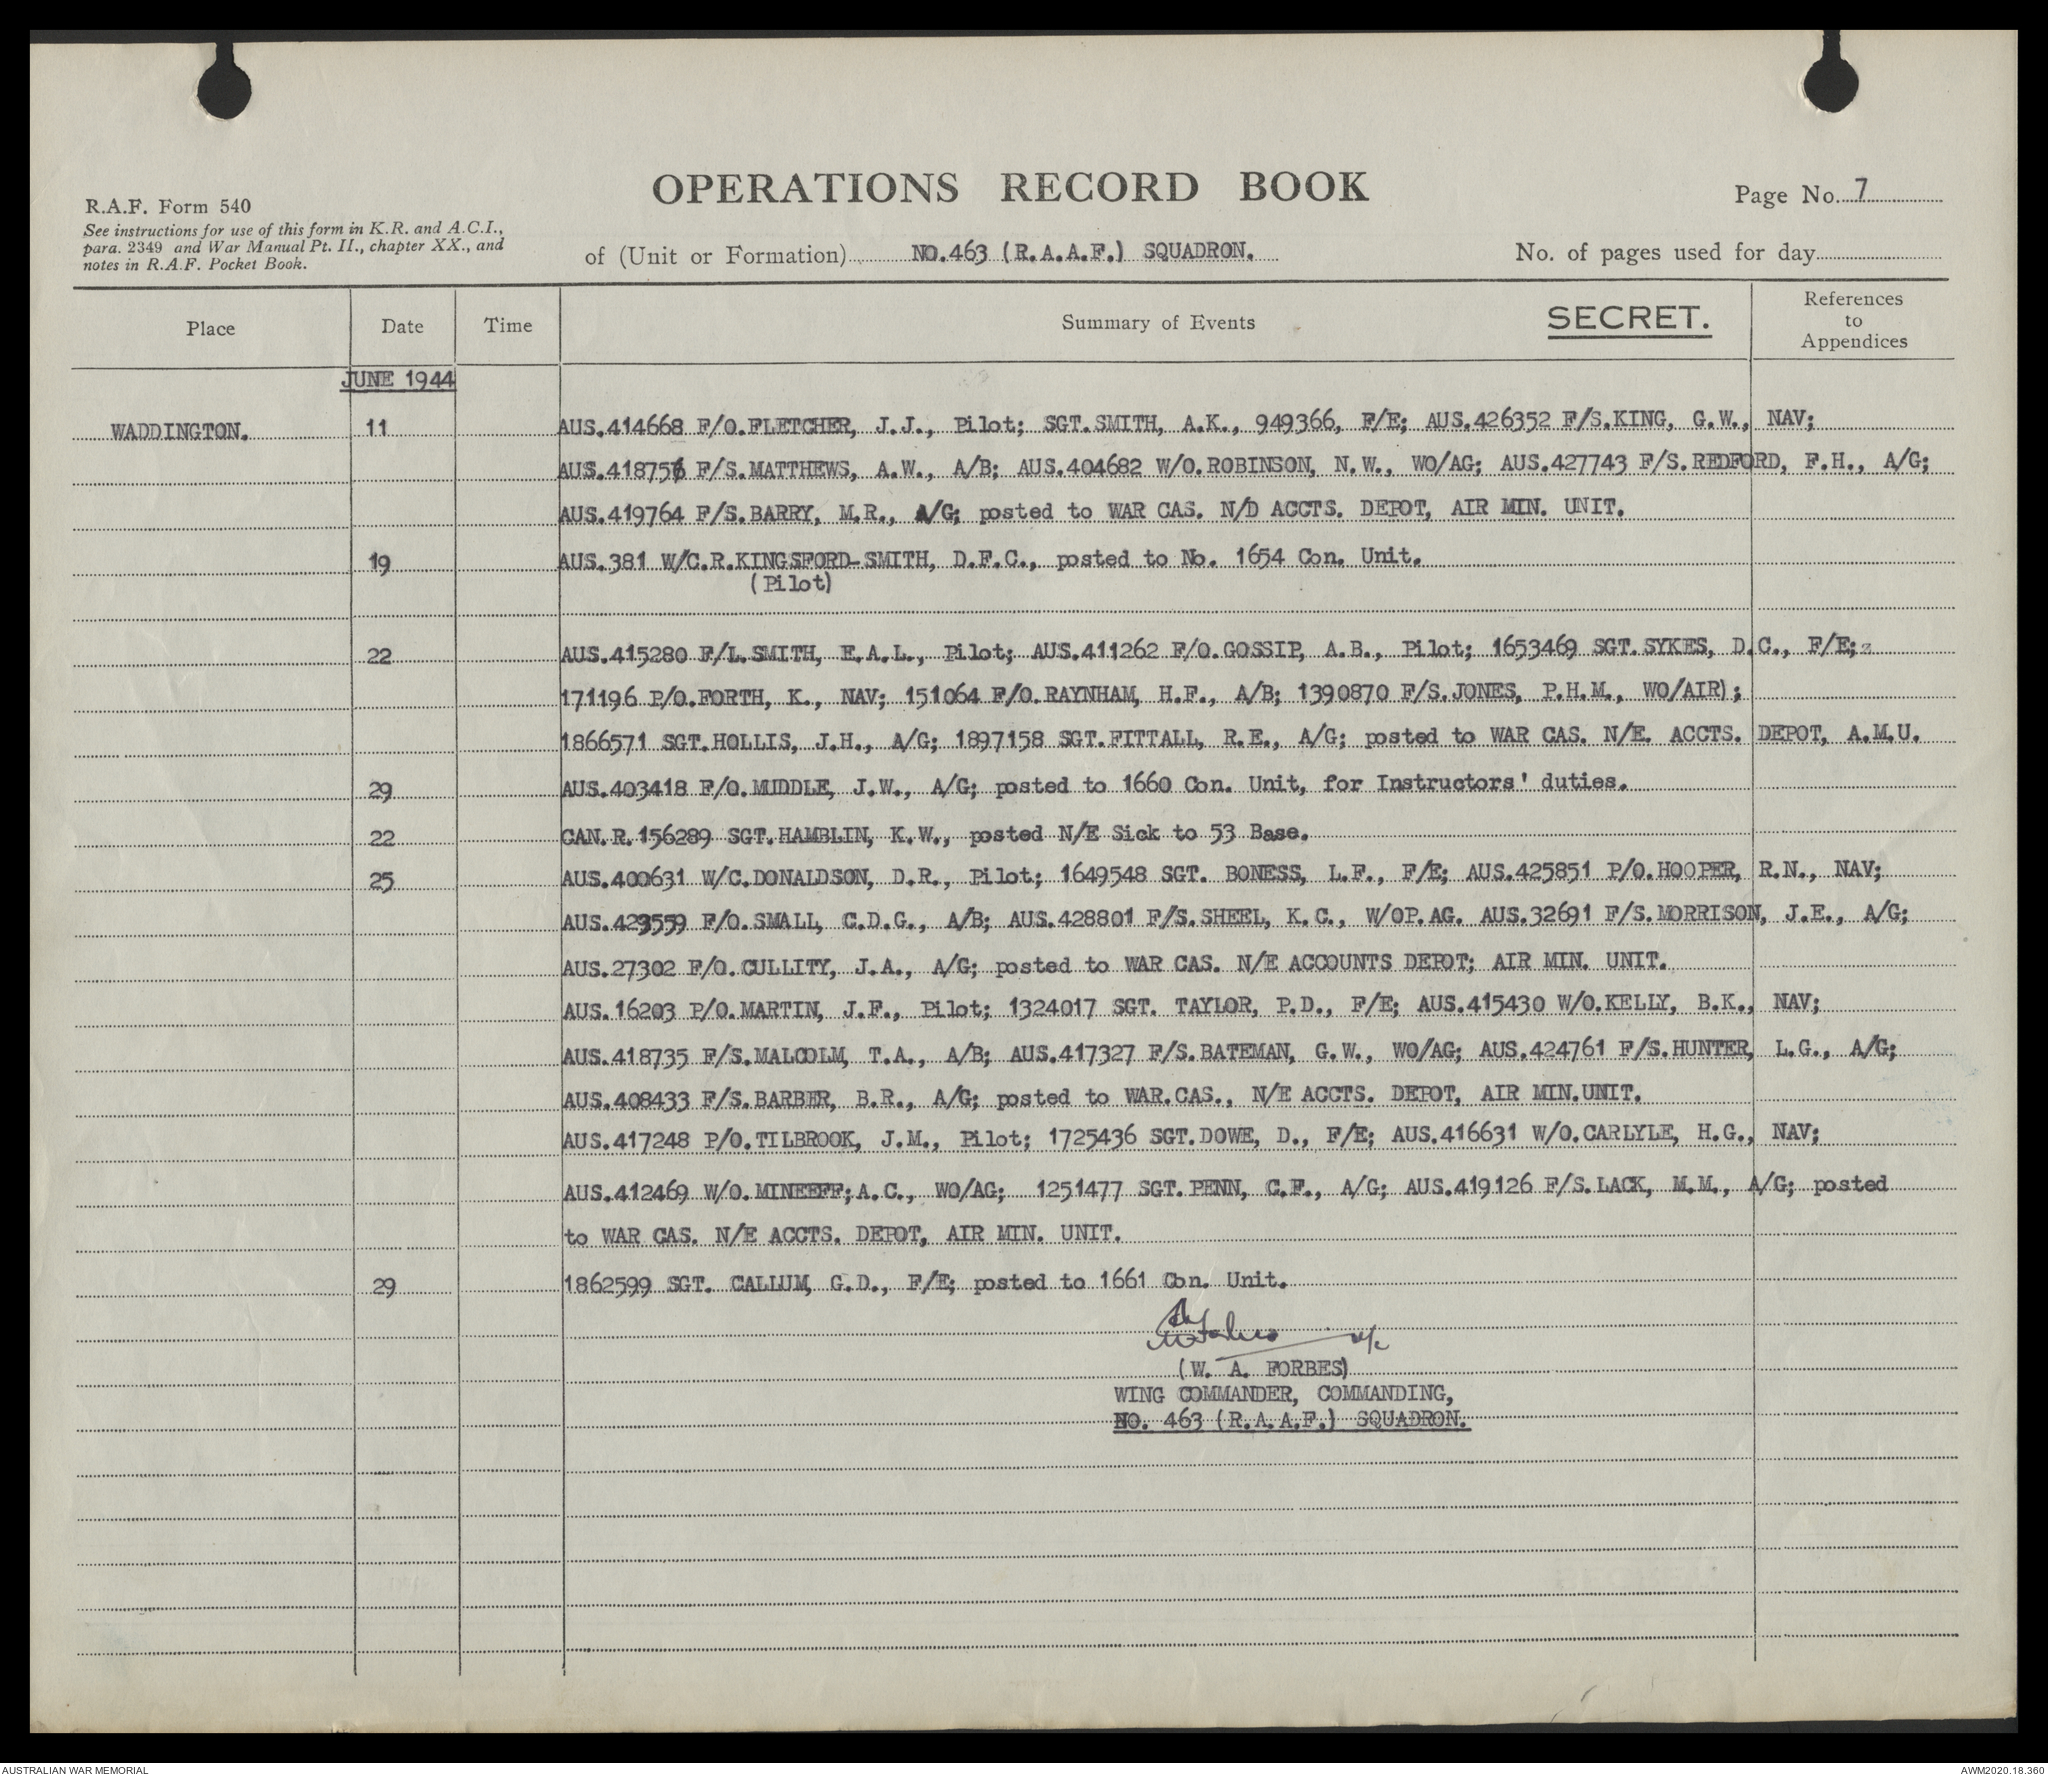 OPERATIONS RECORD BOOK
Page No. 7
R.A.F. Form 540
See instructions for use of this form in K.R. and A.C.I.,
para. 2349 and War Manual Pt. II., chapter XX., and
notes in R.A.F. Pocket Book.
of (Unit or Formation) NO.463 (R.A.A.F.) SQUADRON.
No. of pages used for day
Place Date Time Summary of Events SECRET. References to Appendices
JUNE 1944
WADDINGTON. 11 AUS.414668 F/O.FLETCHER, J.J., Pilot; SGT.SMITH, A.K., 949366, F/E; AUS.426352 F/S.KING, G.W., NAV;
AUS.418756 F/S.MATTHEWS, A.W., A/B; AUS.404682 W/O.ROBINSON, N.W., WO/AG; AUS.427743 F/S.REDFORD, F.H., A/G;
AUS.419764 F/S.BARRY, M.R., A/G; posted to WAR CAS. N/D ACCTS. DEPOT, AIR MIN. UNIT.
19 AUS.381 W/C.R.KINGSFORD-SMITH, D.F.C., posted to No. 1654 Con. Unit.
(Pilot)
22 AUS.415280 F/L.SMITH, E.A.L., Pilot; AUS.411262 F/O.GOSSIP, A.B., Pilot; 1653469 SGT.SYKES, D.C., F/E;
171196 P/O.FORTH, K., NAV; 151064 F/O.RAYNHAM, H.F., A/B; 1390870 F/S.JONES, P.H.M., WO/AIR);
1866571 SGT.HOLLIS, J.H., A/G; 1897158 SGT.FITTALL, R.E., A/G; posted to WAR CAS. N/E. ACCTS. DEPOT, A.M.U.
29 AUS.403418 F/O.MUDDLE, J.W., A/G; posted to 1660 Con. Unit, for Instructors' duties.
22 CAN.R.156289 SGT.HAMBLIN, K.W., posted N/E Sick to 53 Base.
25 AUS.400631 W/C.DONALDSON, D.R., Pilot; 1649548 SGT. BONESS, L.F., F/E; AUS.425851 P/O.HOOPER, R.N., NAV;
AUS.423559 F/O.SMALL, C.D.G., A/B; AUS.428801 F/S.SHEEL, K.C., W/OP.AG. AUS.32691 F/S.MORRISON, J.E., A/G;
AUS.27302 F/O.CULLITY, J.A., A/G; posted to WAR CAS. N/E ACCOUNTS DEPOT; AIR MIN. UNIT.
AUS.16203 P/O.MARTIN, J.F., Pilot; 1324017 SGT. TAYLOR, P.D., F/E; AUS.415430 W/O.KELLY, B.K., NAV;
AUS.418735 F/S.MALCOLM, T.A., A/B; AUS.417327 F/S.BATEMAN, G.W., WO/AG; AUS.424761 F/S.HUNTER, L.G., A/G;
AUS.408433 F/S.BARBER, B.R., A/G; posted to WAR.CAS., N/E ACCTS. DEPOT, AIR MIN.UNIT.
AUS.417248 P/O.TILBROOK, J.M., Pilot; 1725436 SGT.DOWE, D., F/E; AUS.416631 W/O.CARLYLE, H.G., NAV;
AUS.412469 W/O.MINEEFF;A.C., WO/AG; 1251477 SGT.PENN, C.F., A/G; AUS.419126 F/S.LACK, M.M., A/G; posted
to WAR CAS. N/E ACCTS. DEPOT, AIR MIN. UNIT.
29 1862599 SGT. CALLUM, G.D., F/E; posted to 1661 Con. Unit.
(W. A. FORBES)
WING COMMANDER, COMMANDING,
NO. 463 (R.A.A.F.) SQUADRON.
AUSTRALIAN WAR MEMORIAL
AWM2020.18.360